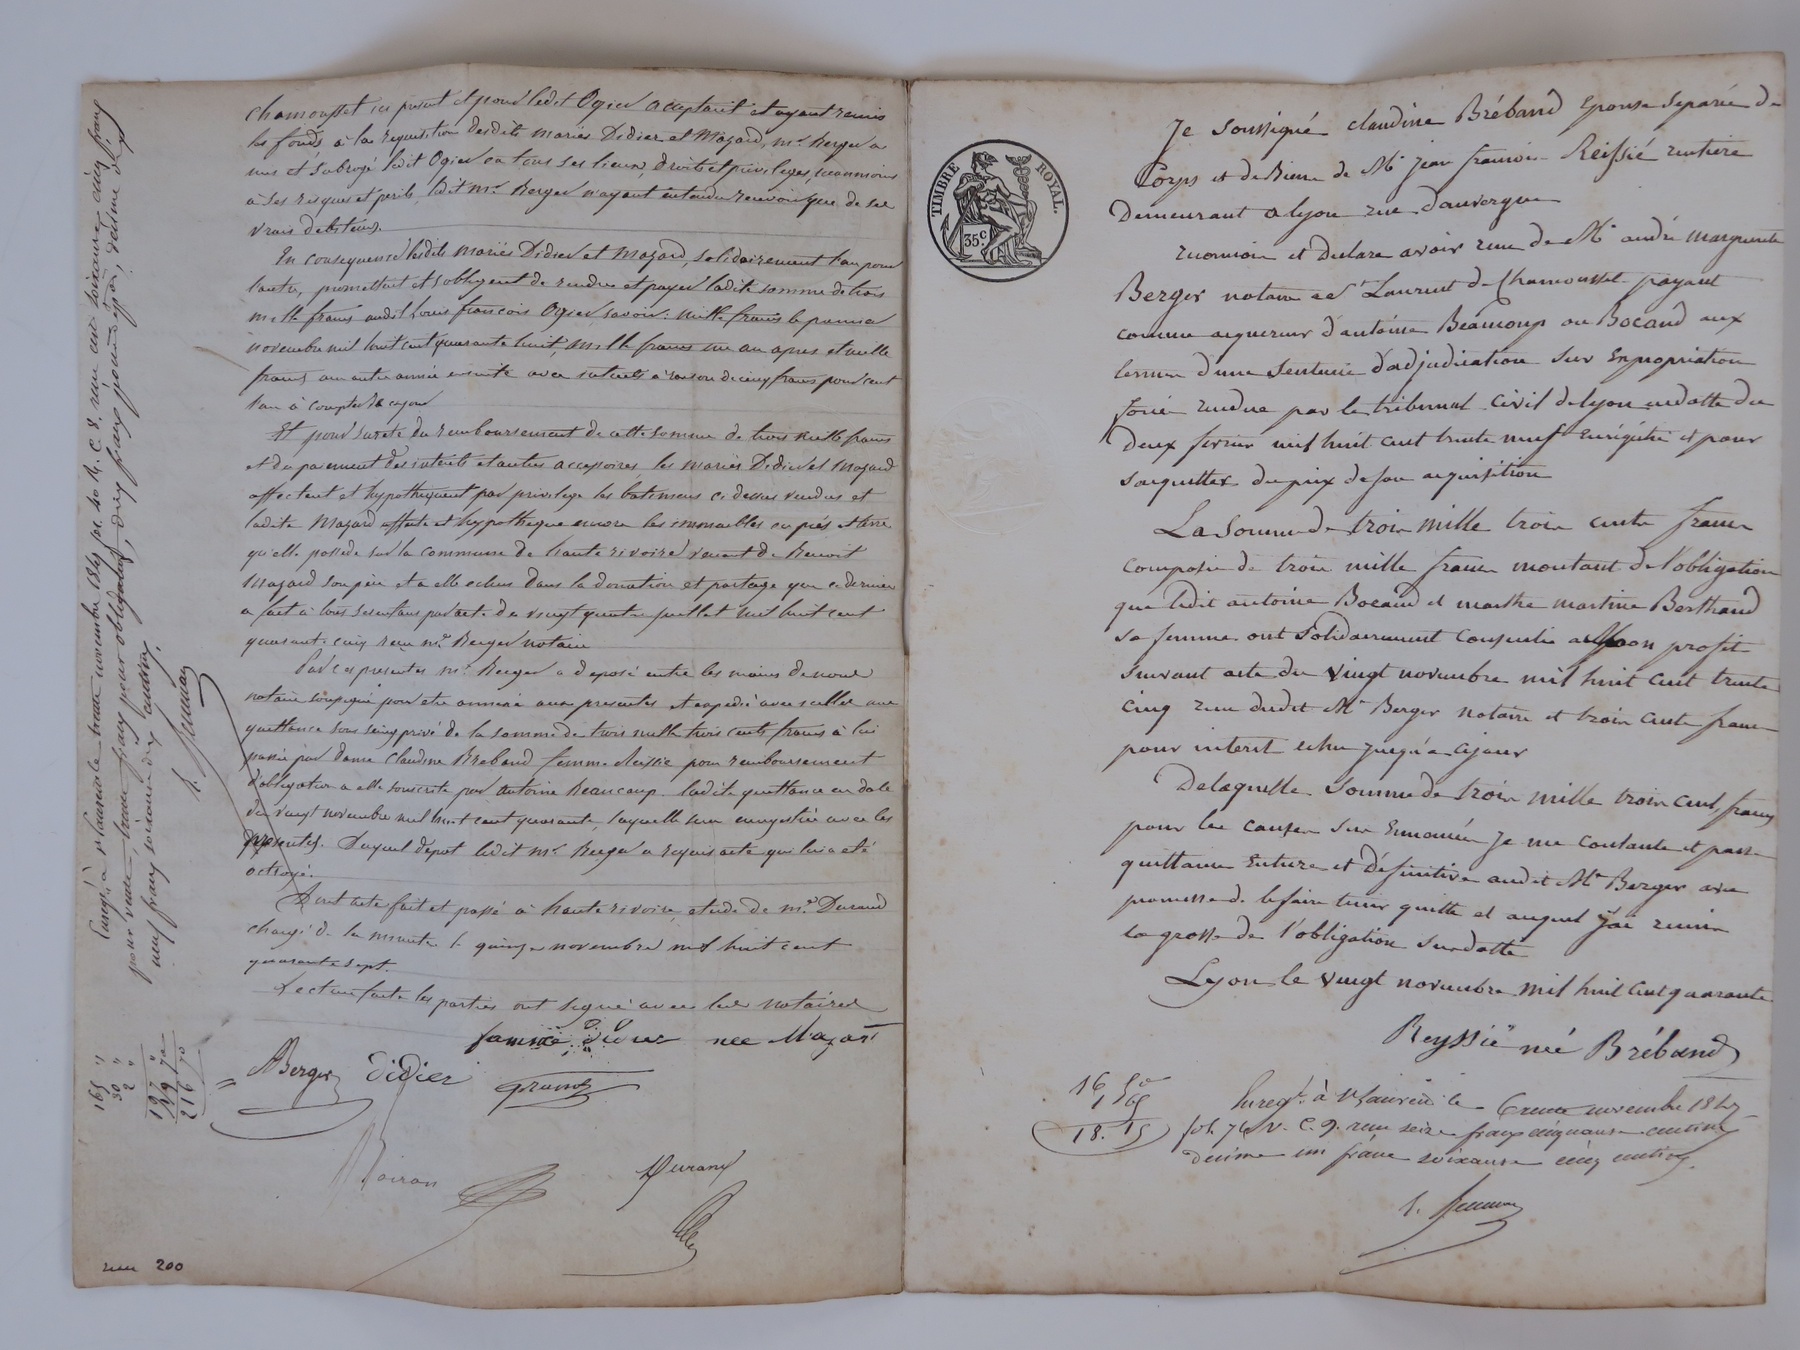 chamousset ici present et pour ledit Ogier acceptant et ayant remis
les fonds à la requisition desdits mariés Didier et Mazard, mr. Berger a
mis et subrogé ledit Ogier à tous ses lieux, droits et privileges, neanmoins
à ses risques et perils, ledit mr. Berger n'ayant entendu recevoir que de ses
vrais debiteurs.
En consequence lesdits mariés Didier et Mazard, solidairement l'un pour
l'autre, promettent et s'obligent de rendre et payer ladite somme de trois
mille francs audit Louis françois Ogier, savoir: mille francs le premier
novembre mil huit cent quarante huit, mille francs un an apres et mille
francs une autre année ensuite avec interets à raison de cinq francs pour cent
l'an à compter de ce jour
Et pour sureté du remboursement de cette somme de trois mille francs
et du paiement des interets et autres accessoires, les mariés Didier et Mazard
affectent et hypothequent par privilege les batimens ci dessus vendus et
ladite Mazard affecte et hypotheque encore les immeubles en prés et terre
qu'elle possede sur la commune de hauterivoire venant de Benoit
Mazard son père et à elle echus dans la donation et partage que ce dernier
a fait à tous ses enfans par acte du vingt quatre juillet mil huit cent
quarante cinq reçu mr. Berger notaire
Par ces presentes mr. Berger a deposé entre les mains de nous
notaire soussigné pour etre annexé aux presentes et expedié avec icelles une
quittance sous seing privé de la somme de trois mille trois cents francs à lui
passée par dame Claudine Breband femme Reissié pour remboursement
d'obligation à elle souscrite par antoine Beaucoup. ladite quittance en date
du vingt novembre mil huit cent quarante, laquelle sera enregistrée avec les
presentes. Duquel depot ledit mr. Berger a requis acte qui lui a eté
octroyé.
Dont acte fait et passé à hauterivoire, etude de mr. Durand
chargé de la minute le quinze novembre mil huit cent
quarante sept.
Lecture faite les parties ont signé avec les notaires
famme didier nee Mazard
ABerger didier
Durand
Enregé à st Laurent le trente novembre 1847 fol. 40 R. C. 8. reçu cent soixante cinq francs
pour vente, trente francs pour obligation, deux francs pour depot, decime dix
neuf francs soixante dix centimes.
165 "
30 "
2 "
197 "
19 70
216 70
200
TIMBRE ROYAL.
35 c.
Je soussigné claudine Bréband Epouse Separée de
Corps et de Biens de Mr. jean francois Reissié rentiere
Demeurant a lyon rue d'auvergne
reconnois et declare avoir recu de Mr andré marguerite
Berger notaire a St Laurent de Chamousset payant
comme aquereur d'antoine Beaucoup ou Bocaud aux
termes d'une Sentence d'adjudication sur Expropriation
forcée rendue par le tribunal civil de lyon endatte du
deux fevrier mil huit cent trente neuf Enrégistré et pour
s'aquitter du prix de son aquisition
La Somme de trois mille trois cents francs
composée de trois mille francs montant de l'obligation
que ledit antoine Bocaud et marthe martine Berthaud
sa femme ont Solidairement consentie a mon profit
suivant acte du vingt novembre mil huit cent trente
cinq recu dudit Mr Berger notaire et trois cents francs
pour interet echu jusqu'a ce jour
De laquelle Somme de trois mille trois cent francs
pour les causes sus Ennoncées je me contente et passe
quittance Entiere et Définitive audit Mr Berger avec
promesse de le faire tenir quitte et auquel j'ai remis
la grosse de l'obligation susdatte
Lyon le vingt novembre mil huit cent quarante
Reyssié neé Bréband
16 50
1 65
18. 15
Enregé. à St Laurent le trente novembre 1847
fol. 76 v. C. 9. reçu seize francs cinquante centimes
decime un franc soixante cinq centimes.